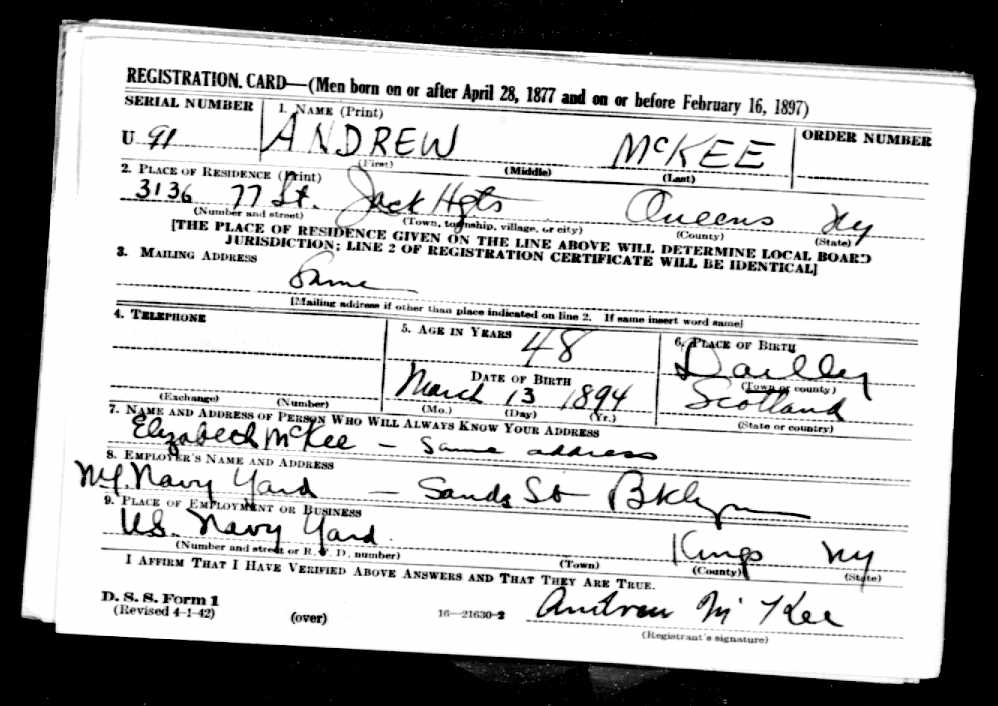 REGISTRATION CARD—(Men born on or after April 28, 1877 and on or before February 16, 1897)
SERIAL NUMBER 1. NAME (Print) ORDER NUMBER
U 91 ANDREW McKEE
(First) (Middle) (Last)
2. PLACE OF RESIDENCE (Print)
3136 77 St. Jack Hgts Queens Ny
(Number and street) (Town, township, village, or city) (County) (State)
[THE PLACE OF RESIDENCE GIVEN ON THE LINE ABOVE WILL DETERMINE LOCAL BOARD
JURISDICTION; LINE 2 OF REGISTRATION CERTIFICATE WILL BE IDENTICAL]
3. MAILING ADDRESS
Same
[Mailing address if other than place indicated on line 2. If same insert word same]
4. TELEPHONE 5. AGE IN YEARS 6. PLACE OF BIRTH
48 Dailly
DATE OF BIRTH (Town or county)
March 13 1894 Scotland
(Exchange) (Number) (Mo.) (Day) (Yr.) (State or country)
7. NAME AND ADDRESS OF PERSON WHO WILL ALWAYS KNOW YOUR ADDRESS
Elizabeth McKee – Same address
8. EMPLOYER'S NAME AND ADDRESS
NY. Navy Yard – Sands St Bklyn
9. PLACE OF EMPLOYMENT OR BUSINESS
U.S. Navy Yard. Kings Ny
(Number and street or R. F. D. number) (Town) (County) (State)
I AFFIRM THAT I HAVE VERIFIED ABOVE ANSWERS AND THAT THEY ARE TRUE.
D. S. S. Form 1
(Revised 4-1-42) (over) 16—21630-2 Andrew McKee
(Registrant's signature)